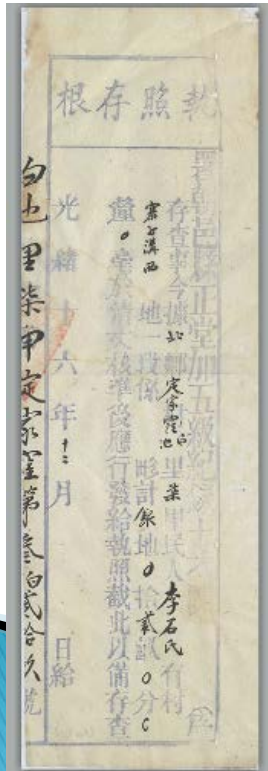 執照存根
邑縣正堂加五級紀 為
存查事今據北鄉定家窪 里柒甲民人李石氏有村
寨子溝西地一段係 形計銀地0拾貳畝0分0
釐0 核準後應行發給執照截此以備存查
光緒十六年十二月 日給
里柒甲定家窪第叁伯貳拾玖號